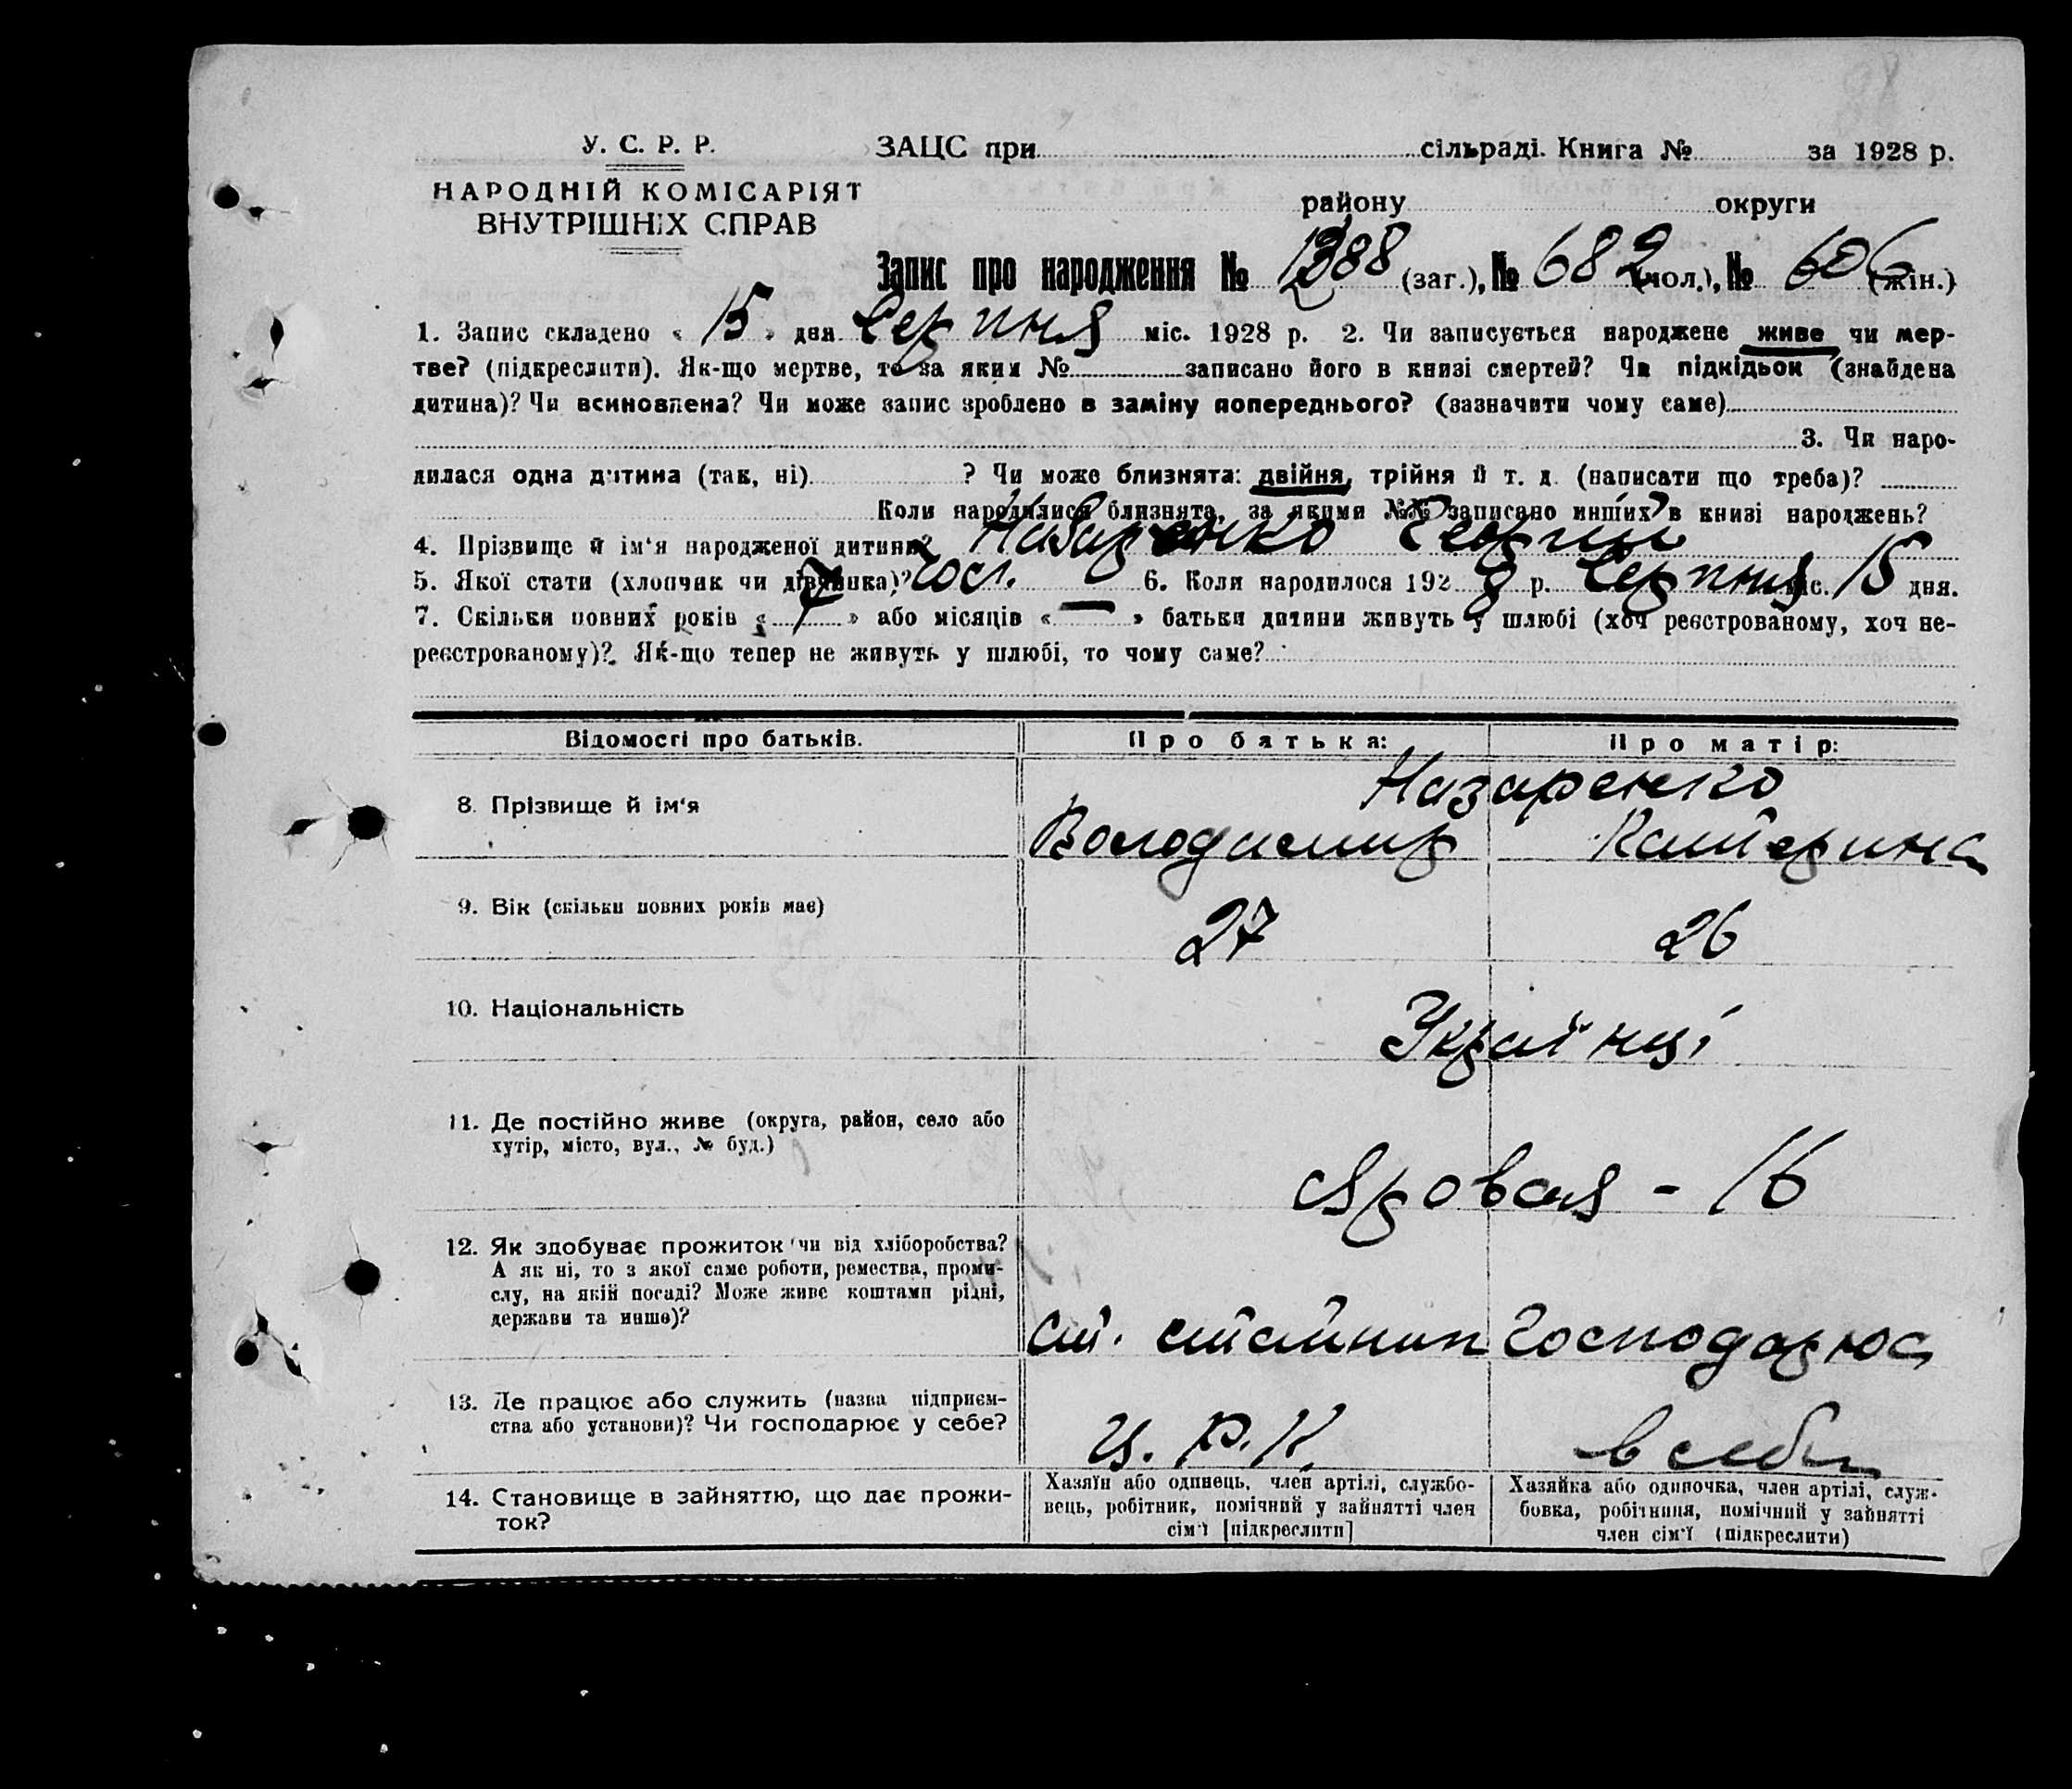 У. С. Р. Р.
НАРОДНІЙ КОМІСАРІЯТ
ВНУТРІШНІХ СПРАВ
ЗАЦС при сільраді. Книга № за 1928 р.
району округи
Запис про народження № 1288 (заг.), № 682 (чол.), № 606 (жін.)
1. Запис складено « 15 » дня Серпня міс. 1928 р. 2. Чи записується народжене живе чи мер-
тве? (підкреслити). Як-що мертве, то за яким № записано його в книзі смертей? Чи підкідьок (знайдена
дитина)? Чи всиновлена? Чи може запис зроблено в заміну попереднього? (зазначити чому саме)
3. Чи наро-
дилася одна дитина (так, ні) ? Чи може близнята: двійня, трійня й т. д. (написати що треба)?
Коли народилися близнята, за якими №№ записано инших в книзі народжень?
4. Прізвище й ім'я народженої дитини? Назаренко Георгий
5. Якої стати (хлопчик чи дівчинка)? чол. 6. Коли народилося 1928 р. Серпня міс. 15 дня.
7. Скільки повних років « 7 » або місяців « — » батьки дитини живуть у шлюбі (хоч реєстрованому, хоч не-
реєстрованому)? Як-що тепер не живуть у шлюбі, то чому саме?
Відомості про батьків. Про батька: Про матір:
8. Прізвище й ім'я Назаренко
Володимир Катерина
9. Вік (скільки повних років має) 27 26
10. Національність Українці
11. Де постійно живе (округа, район, село або
хутір, місто, вул., № буд.)
Яровая - 16
12. Як здобуває прожиток чи від хліборобства?
А як ні, то з якої саме роботи, ремества, проми-
слу, на якій посаді? Може живе коштами рідні,
держави та инше)?
ст. Господарює
13. Де працює або служить (назва підприєм-
ства або установи)? Чи господарює у себе?
Ц. Р. К. в себе
14. Становище в зайняттю, що дає прожи-
ток?
Хазяїн або одинець, член артілі, службо-
вець, робітник, помічний у зайнятті член
сім'ї [підкреслити]
Хазяйка або одиночка, член артілі, служ-
бовка, робітниця, помічний у зайнятті
член сім'ї (підкреслити)